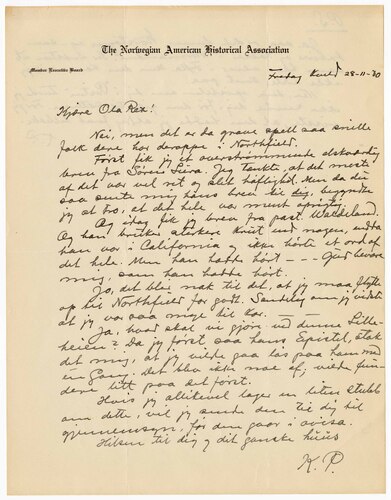 The Norwegian American Historical Association
Member Executive Board
Fredag Kveld 28-11-30
Kjære Ola Rex!
Nei, men det er da grove spell saa snille
folk dere har deroppe i Northfield.
Først fik jeg et overstrømmende elskværdig
brev fra Søren Tura. Jeg tænkte, at det meste
af det var vel vit og slet høflighed. Men da du
saa sente mig hans brev til dig, begyndte
jeg at tro, at det hele var ment
Og idag fik jeg brev fra past. Waldeland.
Og han bruker stærkere Kvist end nogen, enda
han var i California og ikke hørte et ord af
det hele. Men han hadde hørt --- Gud bevare
mig, som han hadde hørt.
Jo, det blir nok til det, at jeg maa flytte
op til Northfield for godt. Sandelig om jeg vidste
at jeg var saa mye til kar.
Ja, hvad skal vi gjøre ved denne Lille-
heien? Da jeg først saa hans Epistel, stak
det mig, at jeg vilde gaa løs paa ham med
en Gang. Det blev ikke noe af, vilde fun-
dere litt paa det først.
Hvis jeg allikevel lager en liten stubb
om dette, vil jeg sende den til dig til
gjennemsyn, før den gaar i avisa.
Hilsen til dig og dit ganske huus
K. P.